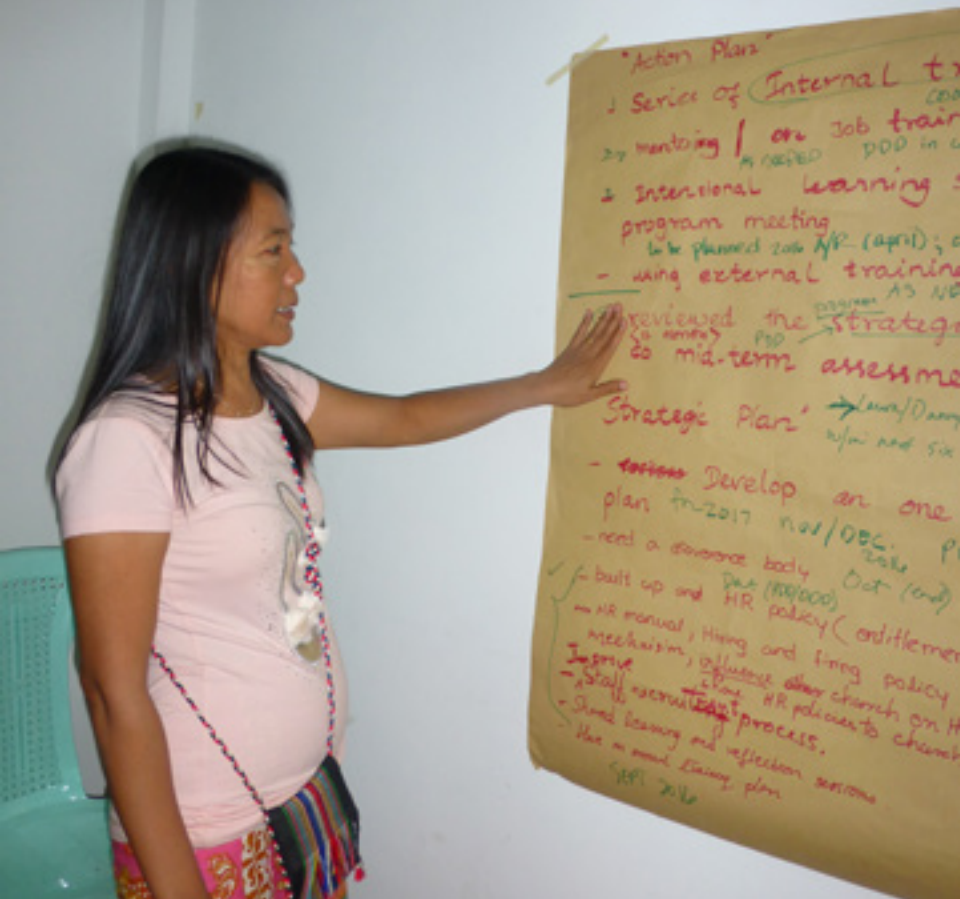 "Action Plan"
Series of Internal tr
mentoring / on Job train
AS NEEDED DDD in
Intensional Learning S
program meeting
to be planned 2016 A/P (April);
- using external training
AS NE
program
reviewed the strateg
(6 months) PSD
do mid-term assessme
Strategic Plan"
→ Laura/Danny
w/mi and six
- Develop an one
plan fn-2017 nov/DEC. 2016 P
- need a governance body Oct (end)
- built up and HR policy (entitlemen
Dat (HR/DDD)
- HR manual, Hiring and firing policy
mechanism, influence other church on H
Improve share HR policies to church
- Staff recruitment process.
- Shared learning and reflection sessions
- Have an annual training plan
SEPT 2016